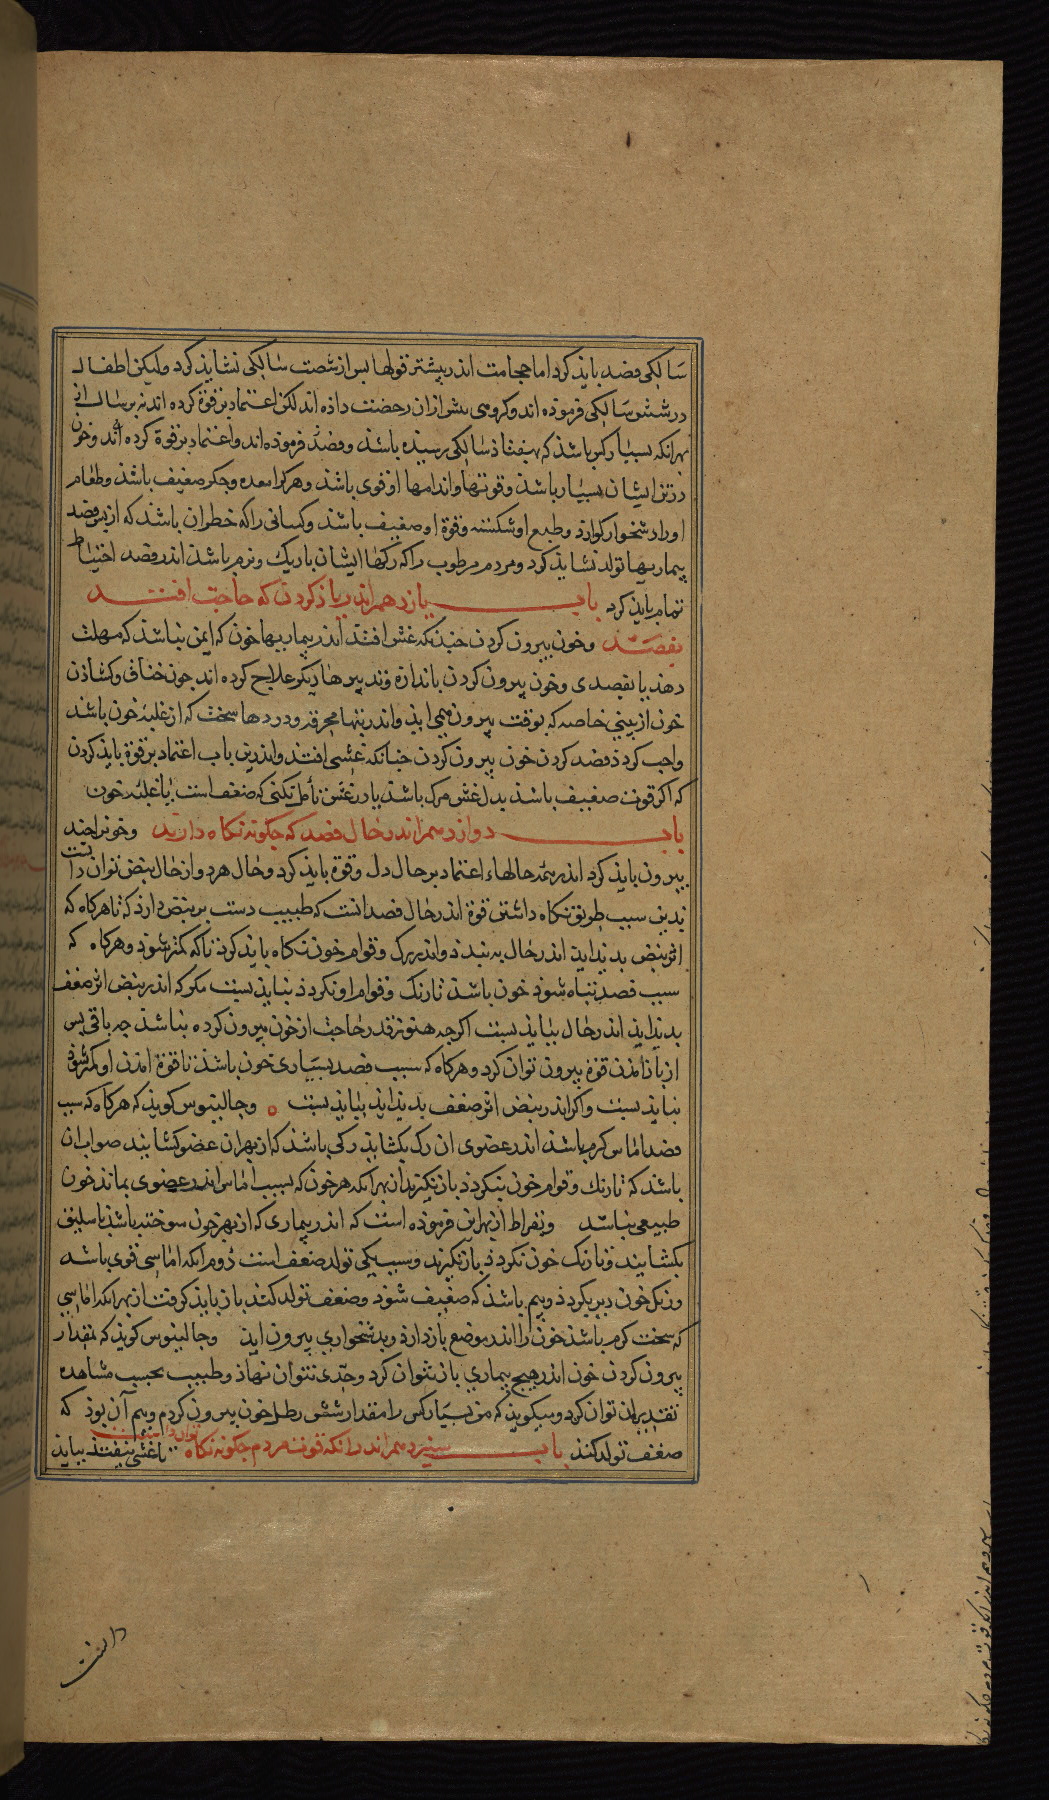 سالکی فصد باید کرد اما حجامت اندر بیشتر قولها پس از شصت سالکی نشاید کرد ولیکن اطفال
در شش سالکی فرموذه اند وکروهی بیش ازان رخصت داذه اند لکن اعتماد بر قوة کرده اند نه بر سال از
بهر انکه بسیار کس باشذ که بهفتاذ سالکی رسیذه باشذ و فصد فرموذه اند واعتماد بر قوة کرده اند وخون
در تن ایشان بسیار باشذ وقوتها واندامها او قوی باشذ وهرکرا معده وجکر ضعیف باشذ وطعام
اورا دشخوار کوارد وطبع او شکسته وقوة او ضعیف باشذ وکسانی را که خطر ان باشذ که از پس فصد
بیماریها تولد نشاید کرد ومردم مرطوب را که رکها ایشان باریک ونرم باشذ اندر فصد احتیاط
تمام باید کرد باب یازدهم اندر یاذ کردن که حاجت افتد
بفصد وخون بیرون کردن چندن که غشی افتد اندر بیماریها خون که ایمن نباشذ که مهلت
دهد یا بقصدی وخون بیرون کردن باندازه وتدبیرها دیکر علاج کرده اند چون خناق وکشاذن
خون از بینی خاصه که بوقت بیرون می ایذ واندر تبها محرقه ودردها سخت که از غلبه خون باشذ
واجب کرد ذ فصد کردن خون بیرون کردن چنانکه غشی افتد واندرین باب اعتماد بر قوة باید کردن
که اکر قوت ضعیف باشذ بدل غشی مرک باشذ یا در غشی تأمل نکنی که ضعف است یا غلبه خون
باب دوازدهم اندر حال فصد که چکونه نکاه دارند وخون را چند
بیرون باید کرد اندر همه حالهاء اعتماد بر حال دل وقوة باید کرد وحال هر دو از حال نبض توان دانست
بدین سبب طریق نکاه داشتن قوة اندر حال فصد انست که طبیب دست بر نبض دارذ که تا هرکاه که
اثر نبض بدیذ ایذ اندر حال به بندذ واندر رک وقوام خون نکاه باید کرد تا که کمتر شوذ وهرکاه که
سبب فصد تباه شوذ خون باشذ تا رنک وقوام او نکردذ نباید بست مکر که اندر نبض اثر ضعف
بدیذ ایذ اندر حال بباید بست اکرچه هنوز قدر حاجت از خون بیرون کرده نباشذ چه باقی پس
از باز آمدن قوة بیرون توان کرد وهرکاه که سبب فصد بسیاری خون باشذ تا قوة امدن او کمتر شوذ
نباید بست واکر اندر نبض اثر ضعف بدیذ ایذ بباید بست وجالینوس کویذ که هرکاه که سبب
فصد اماس کرم باشذ اندر عضوی ان رک بکشاید رکی باشذ که از بهر ان عضو کشایند صواب ان
باشذ که تا رنک وقوام خون بنکردذ باز نکیرذ از بهر انکه هر خون که بسبب اماس اندر عضوی بماند خون
طبیعی نباشد وبقراط از بهر این فرموذه است که اندر بیماری که از بهر خون سوخته باشذ باسلیق
بکشایند وتا رنک خون نکردذ باز نکیرند وسبب یکی تولد ضعف است دوم انکه اماسی قوی باشد
ورنک خون دیر بکردذ وبیم باشذ که ضعیف شوذ وضعف تولد کند باز باید کرفت از بهر انکه اماسی
که سخت کرم باشذ خون را اندر موضع باز دارذ وبدشخواری بیرون ایذ وجالینوس کویذ که مقدار
بیرون کردن خون اندر هیچ بیماری باز نتوان کرد وحدّی نتوان نهاذ وطبیب بحسب مشاهده
تقدیر ان توان کرد ومیکویذ که من بسیار کس را مقدار شش رطل خون بیرون کردم وبیم آن بوذ که
صعف تولد کند باب سیزدهم اندر انکه قوت مردم چکونه نکاه توان داشت تا غشی نیفتد بباید
داشت